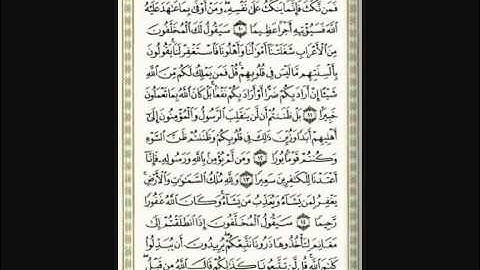 فَمَن نَّكَثَ فَإِنَّمَا يَنكُثُ عَلَىٰ نَفْسِهِۦ ۖ وَمَنْ أَوْفَىٰ بِمَا عَٰهَدَ عَلَيْهُ
ٱللَّهَ فَسَيُؤْتِيهِ أَجْرًا عَظِيمًا ١٠ سَيَقُولُ لَكَ ٱلْمُخَلَّفُونَ
مِنَ ٱلْأَعْرَابِ شَغَلَتْنَآ أَمْوَٰلُنَا وَأَهْلُونَا فَٱسْتَغْفِرْ لَنَا ۚ يَقُولُونَ
بِأَلْسِنَتِهِم مَّا لَيْسَ فِى قُلُوبِهِمْ ۚ قُلْ فَمَن يَمْلِكُ لَكُم مِّنَ ٱللَّهِ
شَيْـًٔا إِنْ أَرَادَ بِكُمْ ضَرًّا أَوْ أَرَادَ بِكُمْ نَفْعًۢا ۚ بَلْ كَانَ ٱللَّهُ بِمَا تَعْمَلُونَ
خَبِيرًۢا ١١ بَلْ ظَنَنتُمْ أَن لَّن يَنقَلِبَ ٱلرَّسُولُ وَٱلْمُؤْمِنُونَ إِلَىٰٓ
أَهْلِيهِمْ أَبَدًا وَزُيِّنَ ذَٰلِكَ فِى قُلُوبِكُمْ وَظَنَنتُمْ ظَنَّ ٱلسَّوْءِ
وَكُنتُمْ قَوْمًۢا بُورًا ١٢ وَمَن لَّمْ يُؤْمِنۢ بِٱللَّهِ وَرَسُولِهِۦ فَإِنَّآ
أَعْتَدْنَا لِلْكَٰفِرِينَ سَعِيرًا ١٣ وَلِلَّهِ مُلْكُ ٱلسَّمَٰوَٰتِ وَٱلْأَرْضِ ۚ
يَغْفِرُ لِمَن يَشَآءُ وَيُعَذِّبُ مَن يَشَآءُ ۚ وَكَانَ ٱللَّهُ غَفُورًا
رَّحِيمًا ١٤ سَيَقُولُ ٱلْمُخَلَّفُونَ إِذَا ٱنطَلَقْتُمْ إِلَىٰ
مَغَانِمَ لِتَأْخُذُوهَا ذَرُونَا نَتَّبِعْكُمْ ۖ يُرِيدُونَ أَن يُبَدِّلُوا۟
كَلَٰمَ ٱللَّهِ ۚ قُل لَّن تَتَّبِعُونَا كَذَٰلِكُمْ قَالَ ٱللَّهُ مِن قَبْلُ ۖ